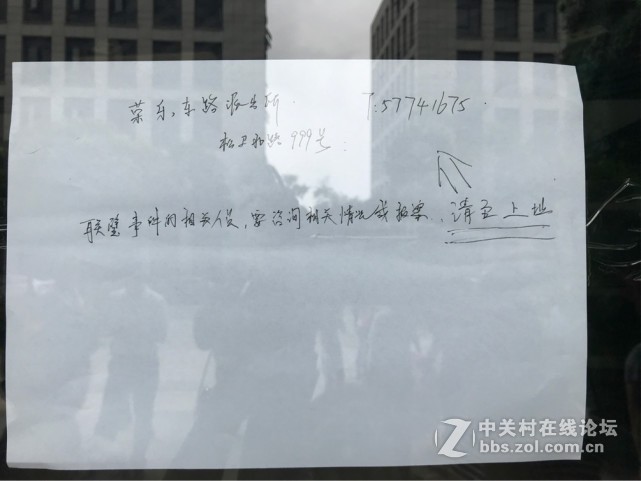 荣乐东路派出所 T:57741675
松卫北路999号:
联璧事件的相关人员,要咨询相关情况或报案,请至上址
中关村在线论坛
bbs.zol.com.cn